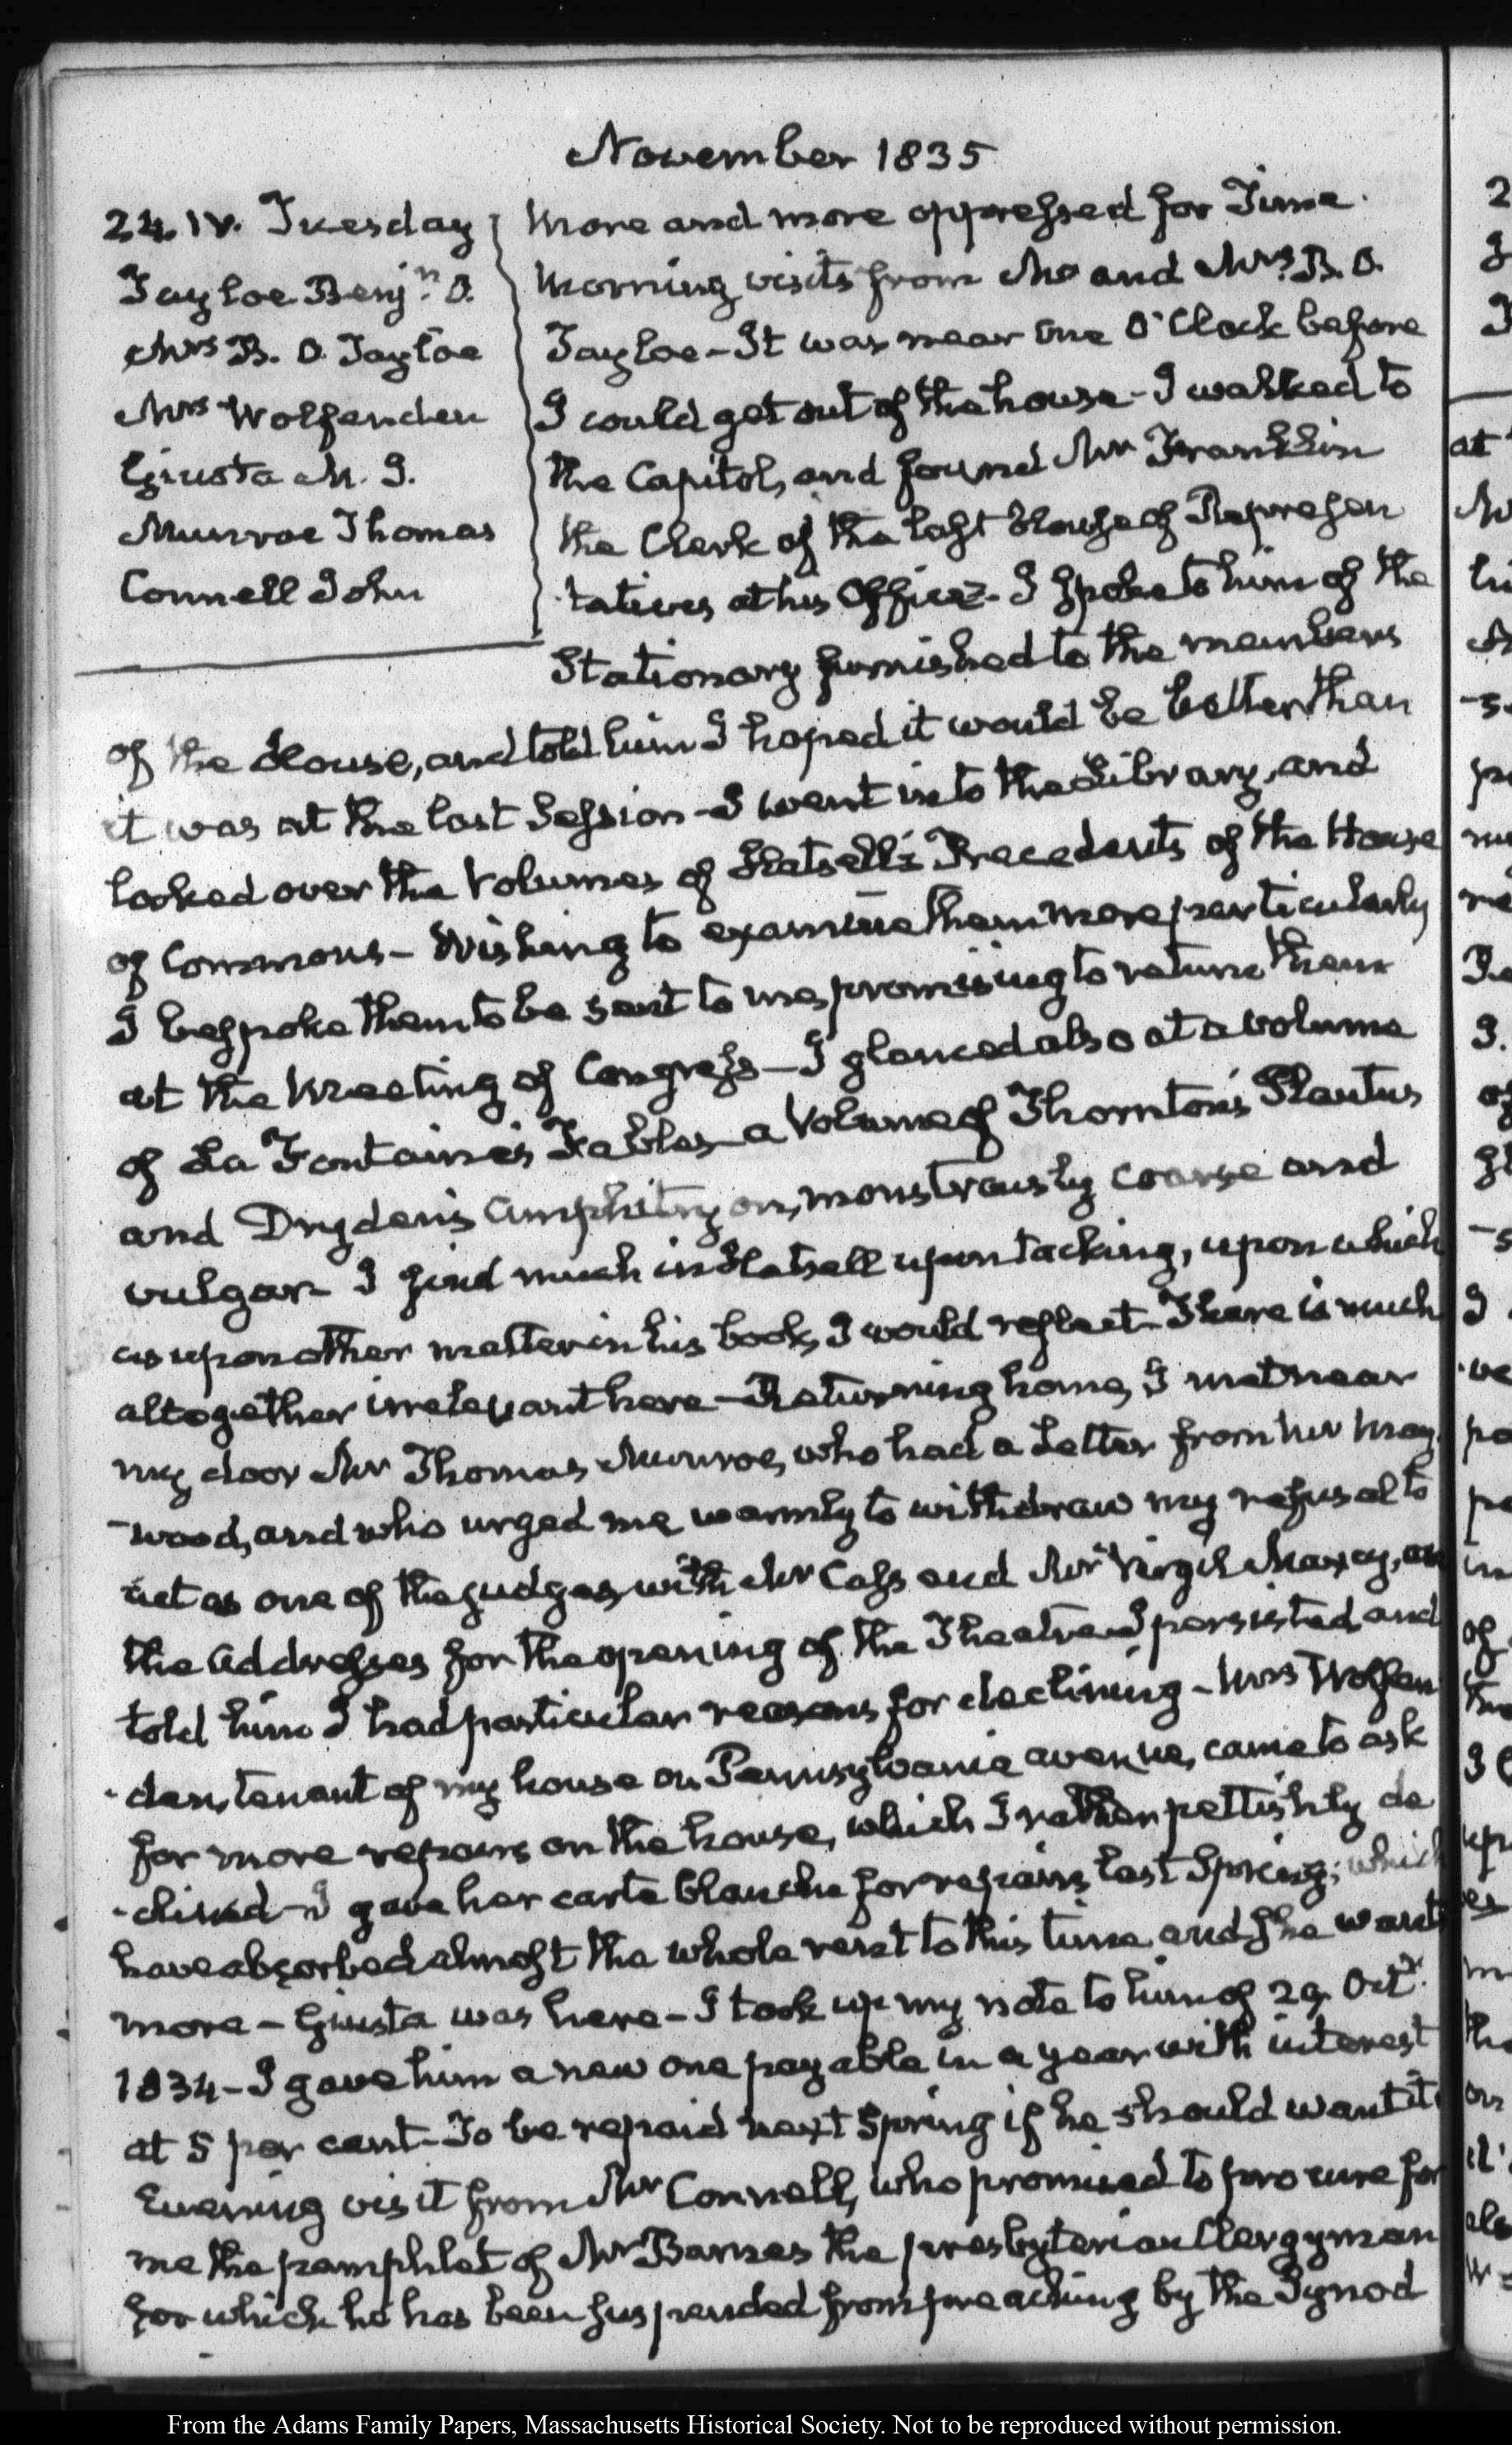 November 1835
24. IV. Tuesday
Tayloe Benjn. O.
Mrs B. O. Tayloe
Mrs Wolfenden
Giusta M. I.
Munroe Thomas
Connell John
More and more oppressed for Time.
Morning visits from Mr and Mrs. B. O.
Tayloe – It was near One O'Clock before
I could get out of the house – I walked to
the Capitol, and found Mr Franklin
the Clerk of the last House of Represen
tatives at his Office – I spoke to him of the
Stationary furnished to the members
of the House, and told him I hoped it would be better than
it was at the last Session – I went into the Library, and
looked over the Volumes of Hatsell's Precedents of the House
of Commons – Wishing to examine them more particularly
I bespoke them to be sent to me, promising to return them
at the Meeting of Congress – I glanced also at a volume
of La Fontaine's Fables – a Volume of Thornton's Plautus
and Dryden's Amphitryon, monstrously coarse and
vulgar – I find much in Hatsell upon tacking, upon which
as upon other matter in his book, I would reflect – There is much
altogether irrelevant here – Returning home, I met near
my door Mr Thomas Munroe, who had a Letter from Mr May
-wood, and who urged me warmly to withdraw my refusal to
act as one of the judges with Mr Cass and Mr Virgil Maxcy, on
the Addresses for the opening of the Theatre – I persisted and
told him I had particular reasons for declining – Mrs Wolfen
-den, tenant of my house on Pennsylvania avenue, came to ask
for more repairs on the house, which I rather pettishly de
-clined – I gave her carte blanche for repairs last Spring; which
have absorbed almost the whole rent to this time and she wants
more – Giusta was here – I took up my note to him of 29. Octr.
1834 – I gave him a new one payable in a year with interest
at 5 per cent – To be repaid next Spring if he should want it
Evening visit from Mr Connell, who promised to procure for
me the pamphlet of Mr Barnes the presbyterian Clergyman
for which he has been suspended from preaching by the Synod
From the Adams Family Papers, Massachusetts Historical Society. Not to be reproduced without permission.